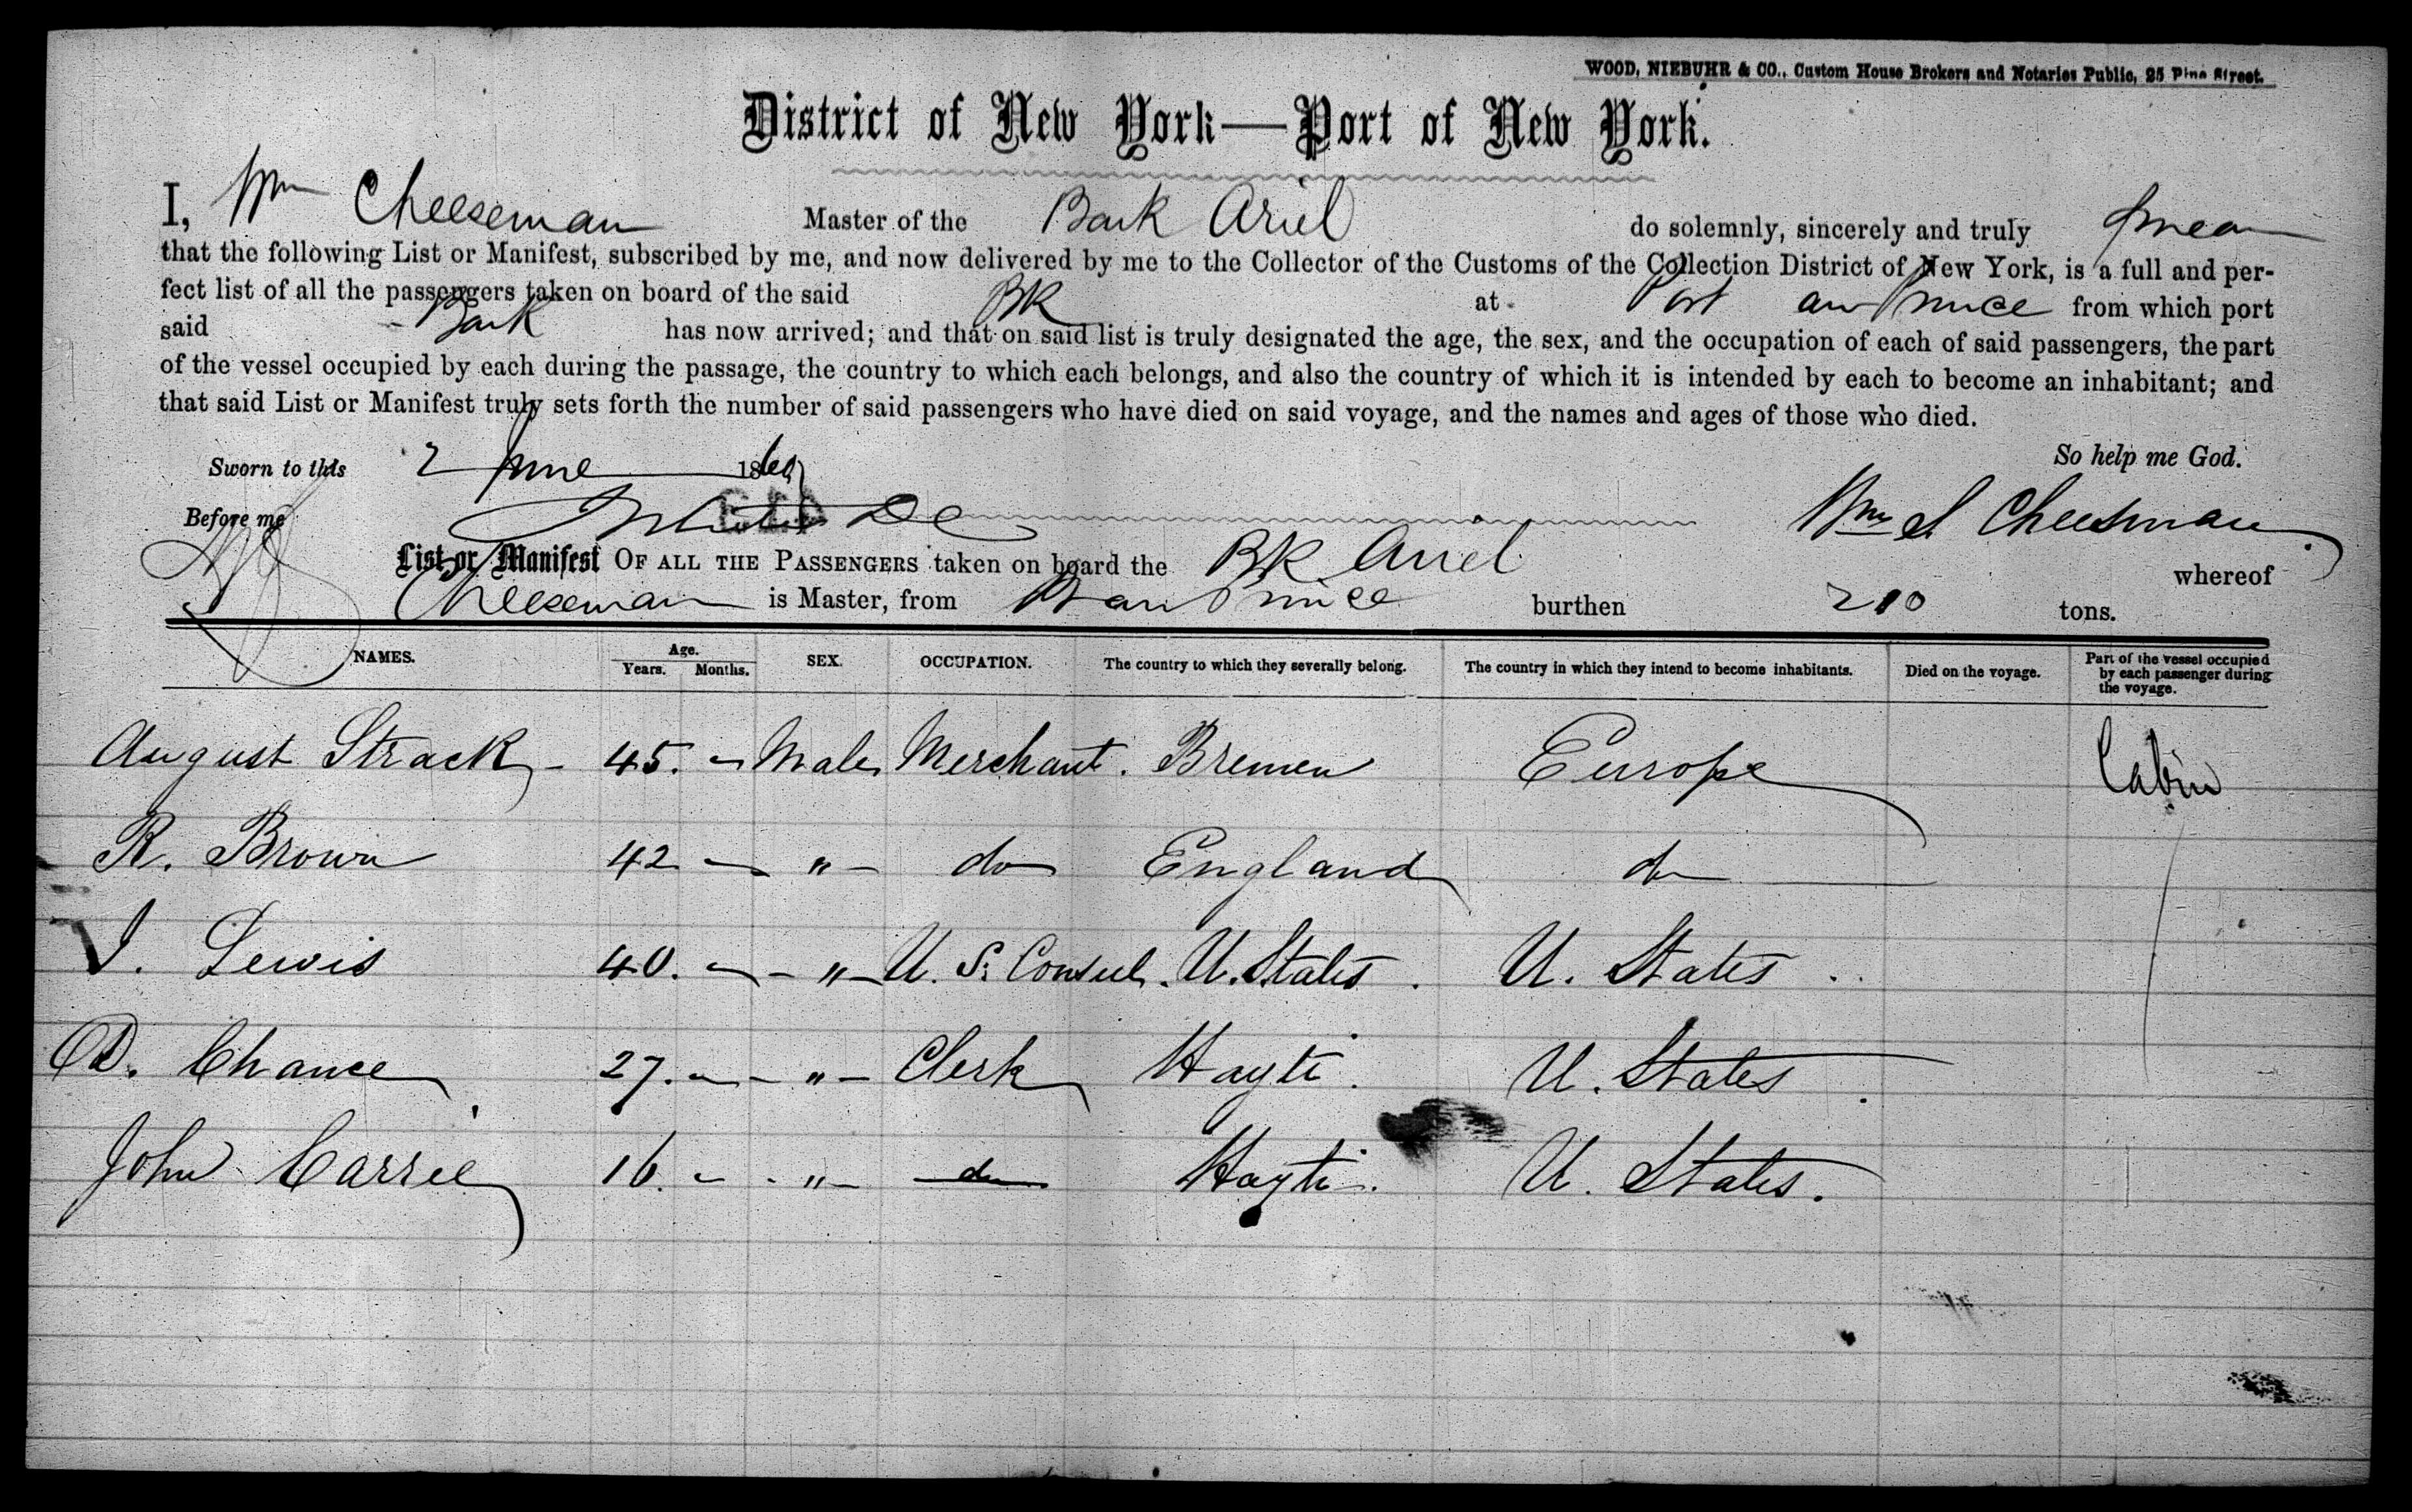 WOOD, NIEBUHR & CO., Custom House Brokers and Notaries Public, 25 Pine Street.
District of New York—Port of New York.
I, Wm Cheeseman Master of the Bark Ariel do solemnly, sincerely and truly swear
that the following List or Manifest, subscribed by me, and now delivered by me to the Collector of the Customs of the Collection District of New York, is a full and per-
fect list of all the passengers taken on board of the said Bk at Port au Prince from which port
said Bark has now arrived; and that on said list is truly designated the age, the sex, and the occupation of each of said passengers, the part
of the vessel occupied by each during the passage, the country to which each belongs, and also the country of which it is intended by each to become an inhabitant; and
that said List or Manifest truly sets forth the number of said passengers who have died on said voyage, and the names and ages of those who died.
So help me God.
Sworn to this 2 June 1869
Before me Wm S Cheeseman
List or Manifest OF ALL THE PASSENGERS taken on board the Bk Ariel whereof
Cheeseman is Master, from Port au Prince burthen 210 tons.
NAMES. Age. Years. Months. SEX. OCCUPATION. The country to which they severally belong. The country in which they intend to become inhabitants. Died on the voyage. Part of the vessel occupied by each passenger during the voyage.
August Strack - 45. " Male Merchant. Bremen Europe Cabin
R. Brown 42 — " — do England do
J. Lewis 40. — - " — U. S. Consul. U. States. U. States.
D. Chance 27. — - " — Clerk Hayti. U. States.
John Carrie 16. - - " — do Hayti. U. States.